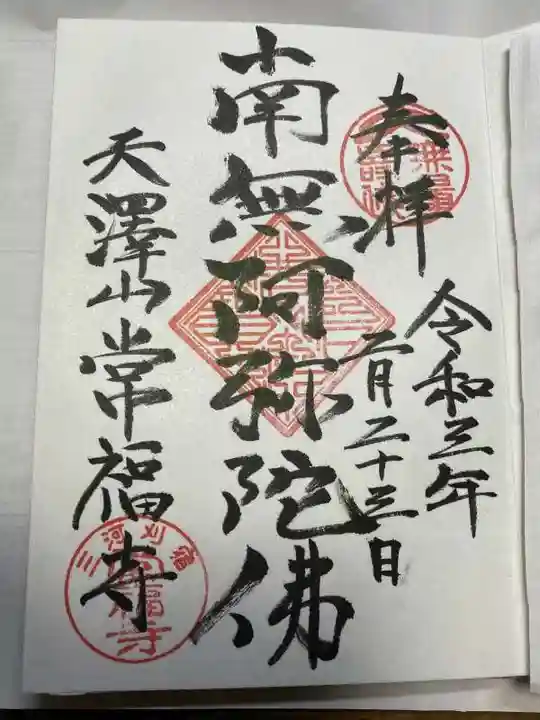 奉拝
令和三年
二月二十三日
南無阿弥陀佛
天澤山常福寺
三河刈宿